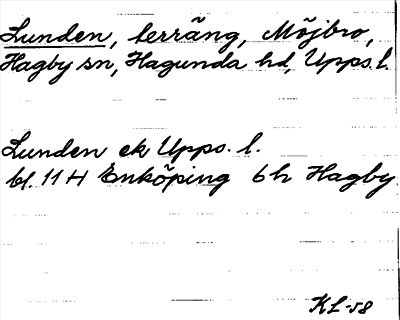 Lunden, terräng, Möjbro,
Hagby sn, Hagunda hd, Upps. l.
Lunden ek Upps. l.
bl. 11 H Enköping 6 h Hagby
KL -58